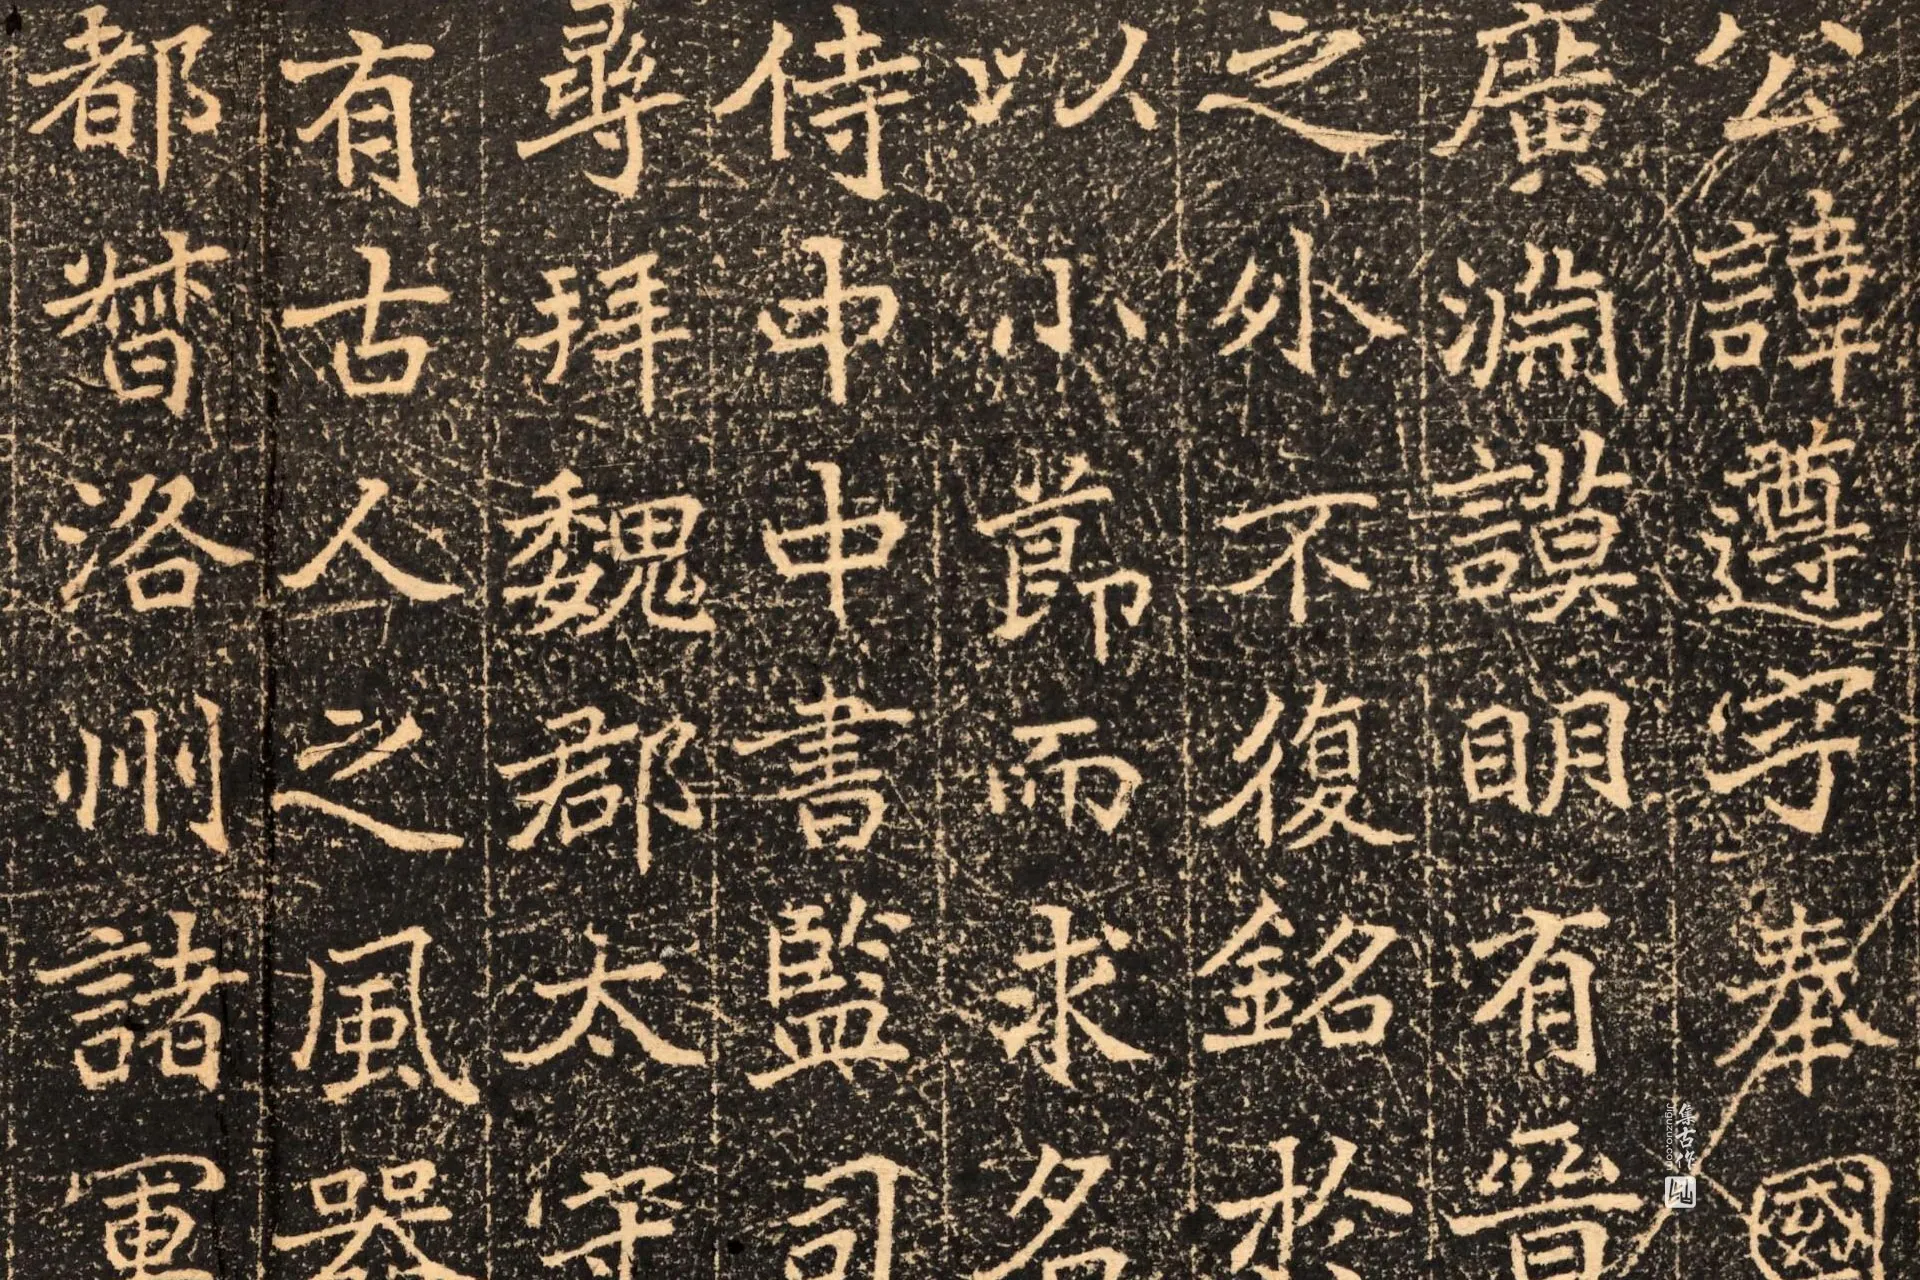 公諱遵字奉國
廣淵謨眀有晉
之外不復銘扵
以小莭而求名
侍中中書監司
尋拜魏郡太守
有古人之風器
都督洛州諸軍
集古作
jiguzuo.com